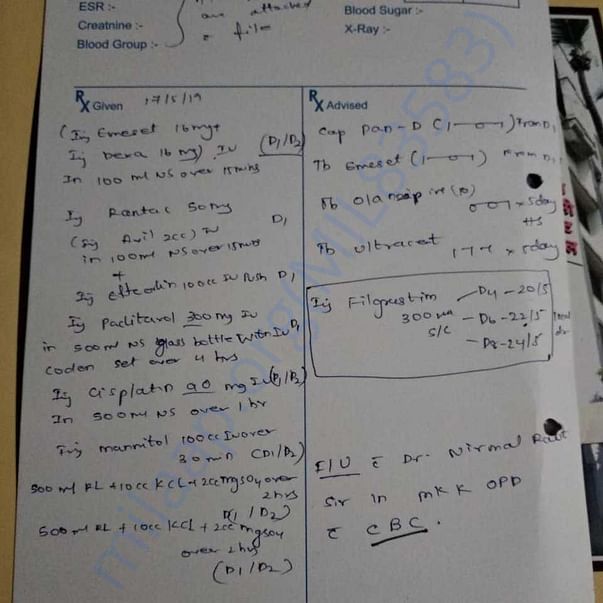 ESR:-
Creatnine :-
Blood Group :-
are attached
c̄ file
Blood Sugar :-
X-Ray :-
Rx Given 17/5/19
(Inj Emeset 16mg +
Inj Dexa 16 mg) IV (D1/D2)
In 100 ml NS over 15mins
Inj Rantac 50mg
(Inj Avil 2cc) IV D1
in 100ml NS over 15mins
+
Inj 100cc IV Push D1
Inj Paclitaxol 300mg IV
in 500ml NS glass bottle with IV D1
codon set over 4 hrs
Inj Cisplatin 90 mg IV (D1/D2)
In 500ml NS over 1hr
Inj mannitol 100cc IV over
30min (D1/D2)
500 ml RL + 10cc KCL + 2cc mgso4 over
2hrs
(D1/D2)
500 ml RL + 10cc KCL + 2cc mgso4
over 2hrs
(D1/D2)
Rx Advised
Cap Pan-D (1-0-1) From D1
Tb Emeset (1-0-1) From D1
Tb Olanzapine
0 0 1 x 5day
HS
Tb Ultracet 1-1-1 x 5day
Inj Filgrastim — D4 - 20/5
300 — D6 - 22/5
S/C — D8 - 24/5
F/U c̄ Dr. Nirmal Raut
Sir in MKK OPD
c̄ CBC.
milaap.org(MIL83583)